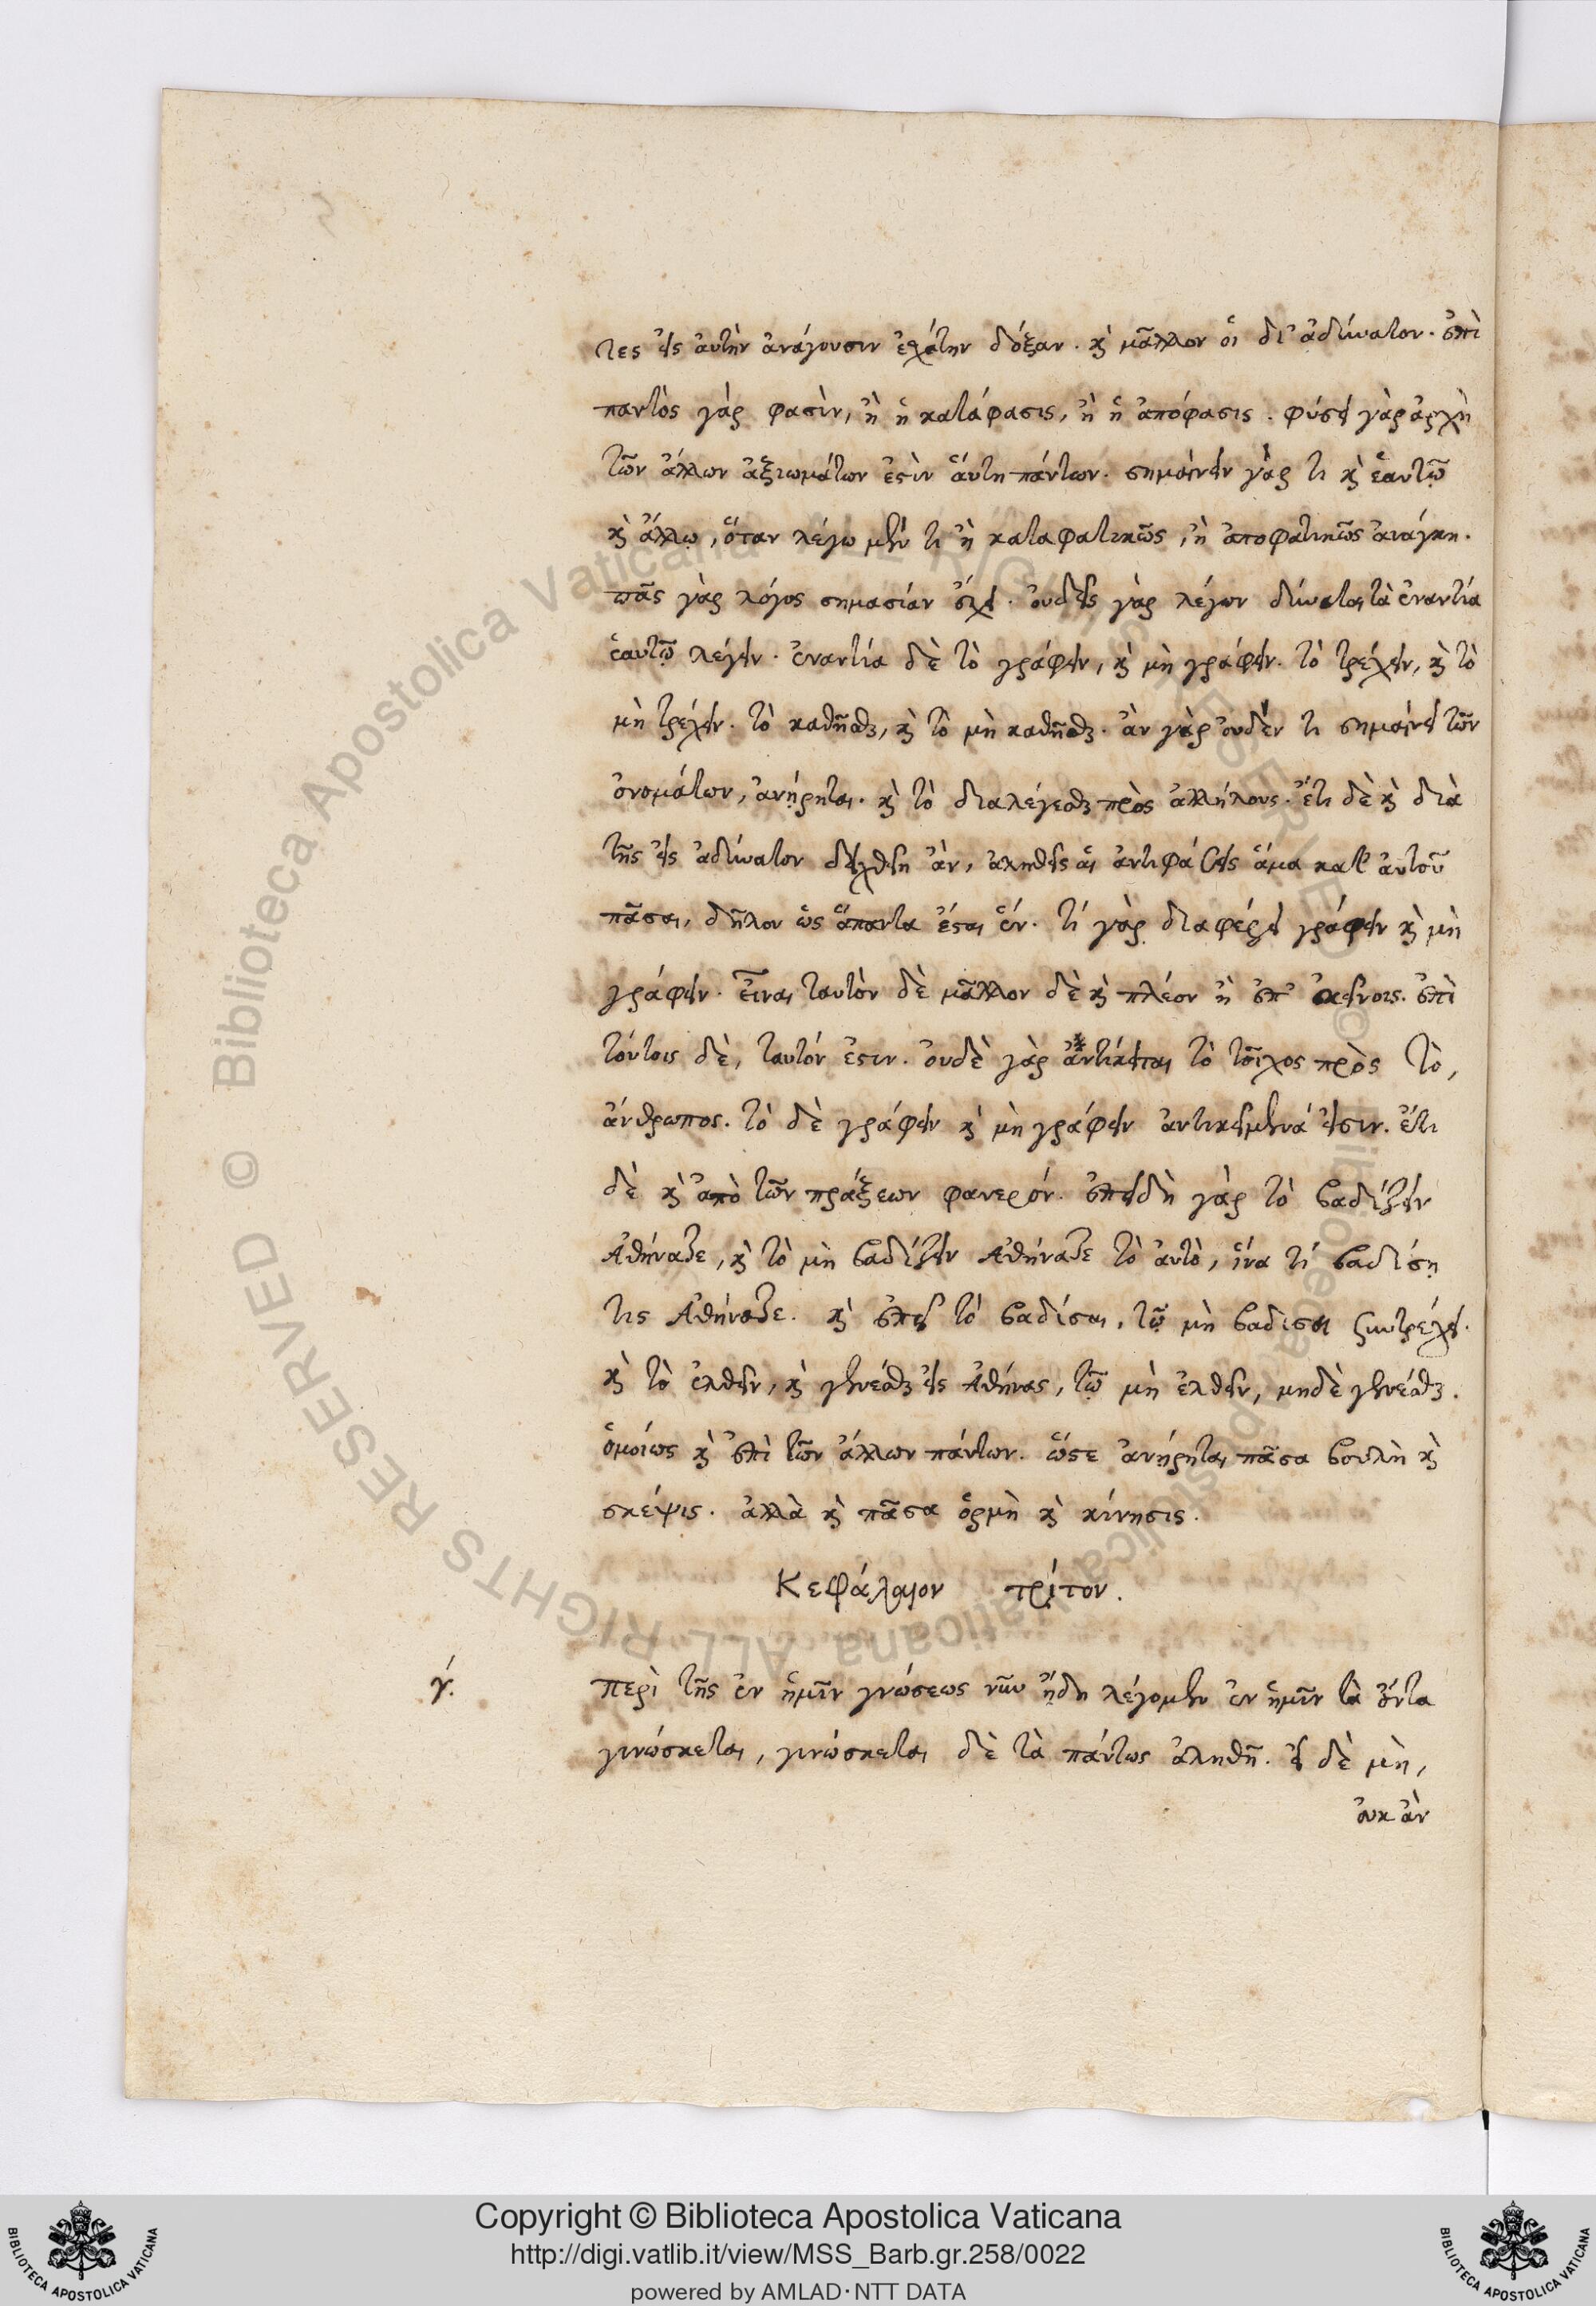 τες εἰς αὐτὴν ἀνάγουσιν ἐσχάτην δόξαν. καὶ μᾶλλον οἱ δι' ἀδύνατον. ἐπὶ
παντὸς γὰρ φασὶν, ἢ ἡ κατάφασις, ἢ ἡ ἀπόφασις. φύσει γὰρ ἀρχὴ
τῶν ἄλλων ἀξιωμάτων ἐστὶν ἅυτη πάντων. σημαίνειν γὰρ τι καὶ ἑαυτῷ
καὶ ἄλλῳ, ὅταν λέγω μέν τι ἢ καταφατικῶς, ἢ ἀποφατικῶς ἀνάγκη.
πᾶς γὰρ λόγος σημασίαν ἔχει. ὀυδεὶς γὰρ λέγων δύναται τὰ ἐναντία
ἑαυτῷ λέγειν. ἐναντία δὲ τὸ γράφειν, καὶ μὴ γράφειν. τὸ τρέχειν, καὶ τὸ
μὴ τρέχειν. τὸ καθῆσθαι, καὶ τὸ μὴ καθῆσθαι. ἂν γὰρ ὀυδέν τι σημαίνει τῶν
ὀνομάτων, ἀνῄρηται. καὶ τὸ διαλέγεσθαι πρὸς ἀλλήλους. ἔτι δὲ καὶ διὰ
τῆς εἰς ἀδύνατον δειχθείη ἂν, ἀληθεῖς αἱ ἀντιφάσεις ἅμα κατ' ἀυτοῦ
πᾶσαι, δῆλον ὡς ἅπαντα ἔσται ἕν. τί γὰρ διαφέρει γράφειν καὶ μὴ
γράφειν. εἶναι ταυτὸν δὲ μᾶλλον δὲ καὶ πλέον ἢ ἐπ' ἐκείνοις. ἐπὶ
τούτοις δὲ, ταυτόν ἐστιν. ὀυδὲ γὰρ ἀντίκειται τὸ τοῖχος πρὸς τὸ,
ἄνθρωπος. τὸ δὲ γράφειν καὶ μὴ γράφειν ἀντικειμενά εἰσιν. ἔτι
δὲ καὶ ἀπὸ τῶν πράξεων φανερόν. ἐπειδὴ γὰρ τὸ βαδίζειν
Ἀθήναζε, καὶ τὸ μὴ βαδίζειν Ἀθήναζε τὸ ἀυτὸ, ἵνα τί βαδίσῃ
τις Ἀθήναζε. καὶ ἐπεὶ τὸ βαδίσαι, τῷ μὴ βαδίσαι συντρέχει.
καὶ τὸ ἐλθεῖν, καὶ γενέσθαι εἰς Ἀθήνας, τῷ μὴ ἐλθεῖν, μηδὲ γενέσθαι.
ὁμοίως καὶ ἐπὶ τῶν ἄλλων πάντων. ὥστε ἀνῄρηται πᾶσα βουλὴ καὶ
σκέψις. ἀλλὰ καὶ πᾶσα ὁρμὴ καὶ κίνησις.
Κεφάλαιον τρίτον.
γ΄. περὶ τῆς ἐν ἡμῖν γνώσεως νῦν ἤδη λέγομεν ἐν ἡμῖν τὰ ὄντα
γινώσκεται, γινώσκεται δὲ τὰ πάντως ἀληθῆ. εἰ δὲ μὴ,
ὀυκ ἂν
© Biblioteca Apostolica Vaticana ALL RIGHTS RESERVED
Copyright © Biblioteca Apostolica Vaticana
http://digi.vatlib.it/view/MSS_Barb.gr.258/0022
powered by AMLAD·NTT DATA
BIBLIOTECA APOSTOLICA VATICANA
BIBLIOTECA APOSTOLICA VATICANA